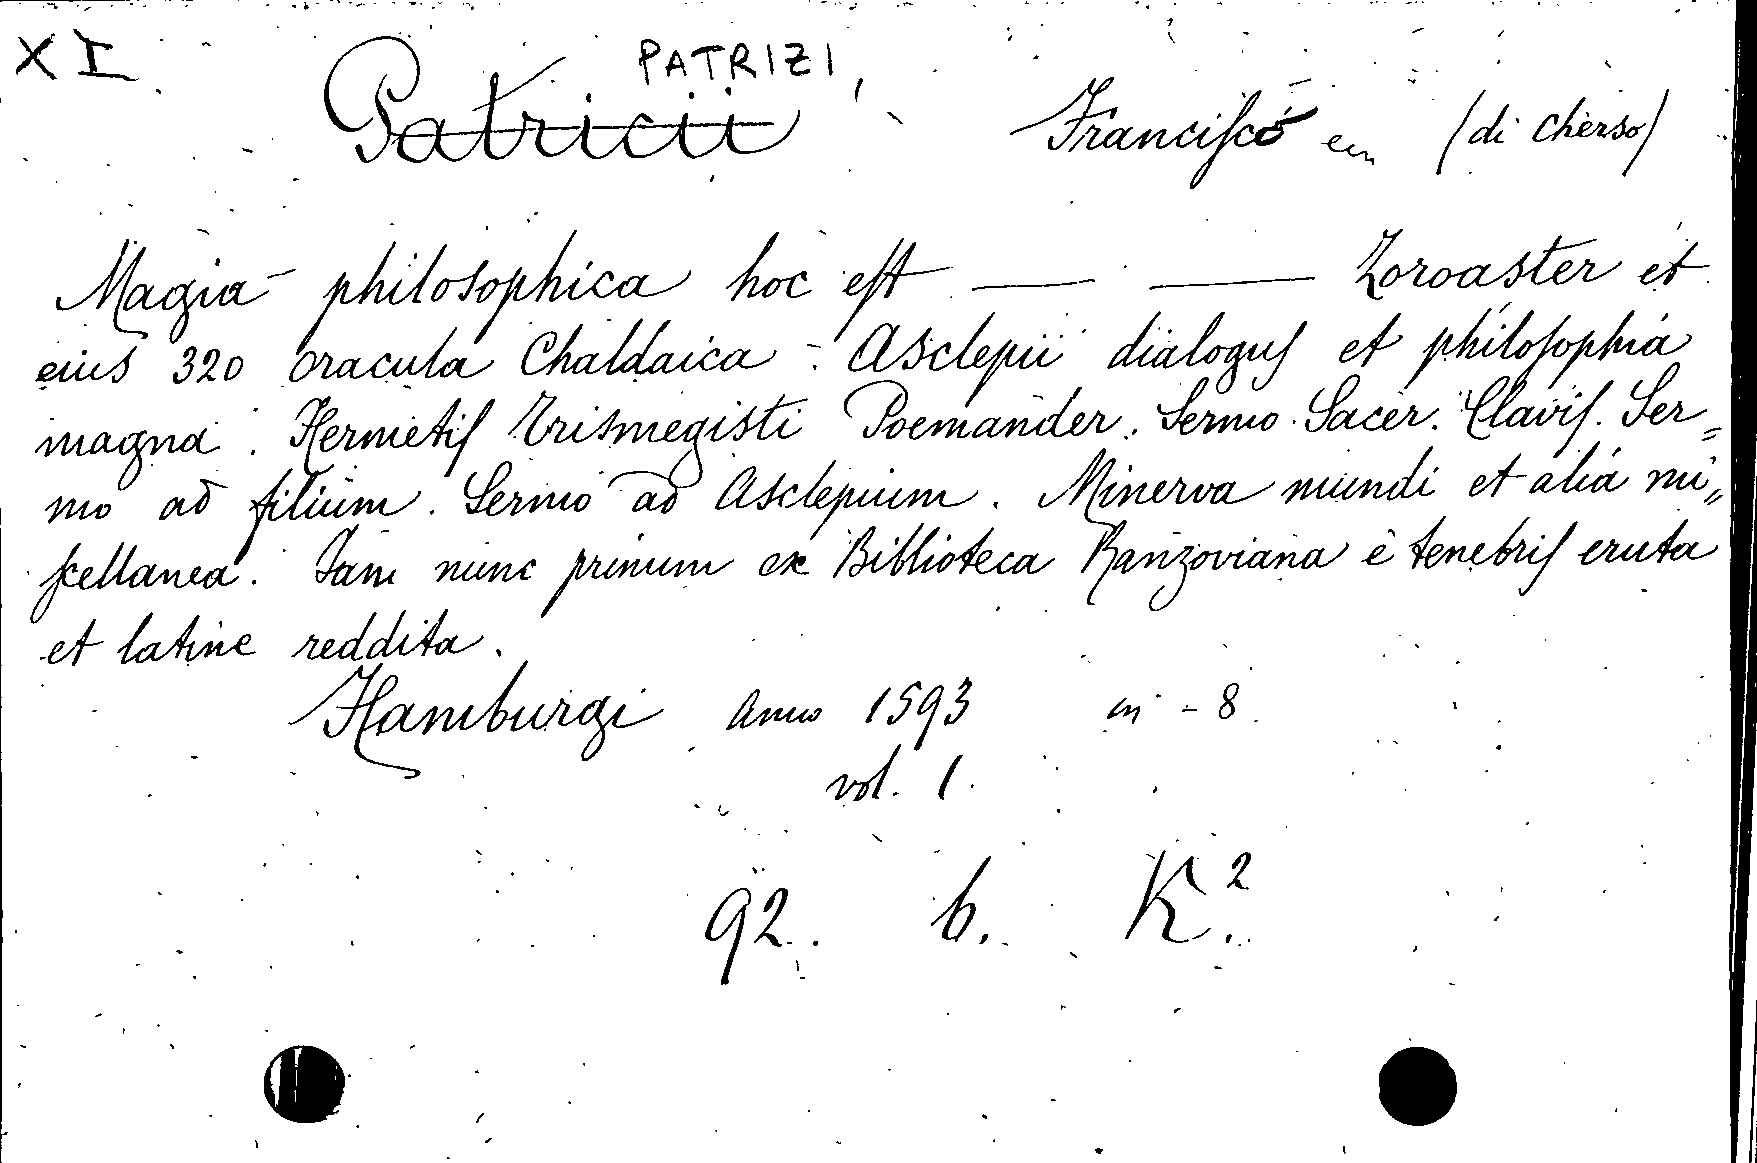 XI
PATRIZI,
Patricii Francisco (di Cherso)
Magia philosophica hoc est — — Zoroaster et
eius 320 oracula Chaldaica. Asclepii dialogus et philosophia
magna. Hermetis Trismegisti Poemander. Sermo Sacer. Clavis. Ser=
mo ad filium. Sermo ad Asclepium. Minerva mundi et alia mi„
scellanea. Jam nunc primum ex Biblioteca Ranzoviana è tenebris eruta
et latine reddita.
Hamburgi Anno 1593 in - 8.
vol. 1.
92. b. K.²